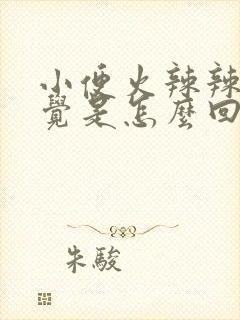 小便火辣辣
覺是怎麼回
朱駿